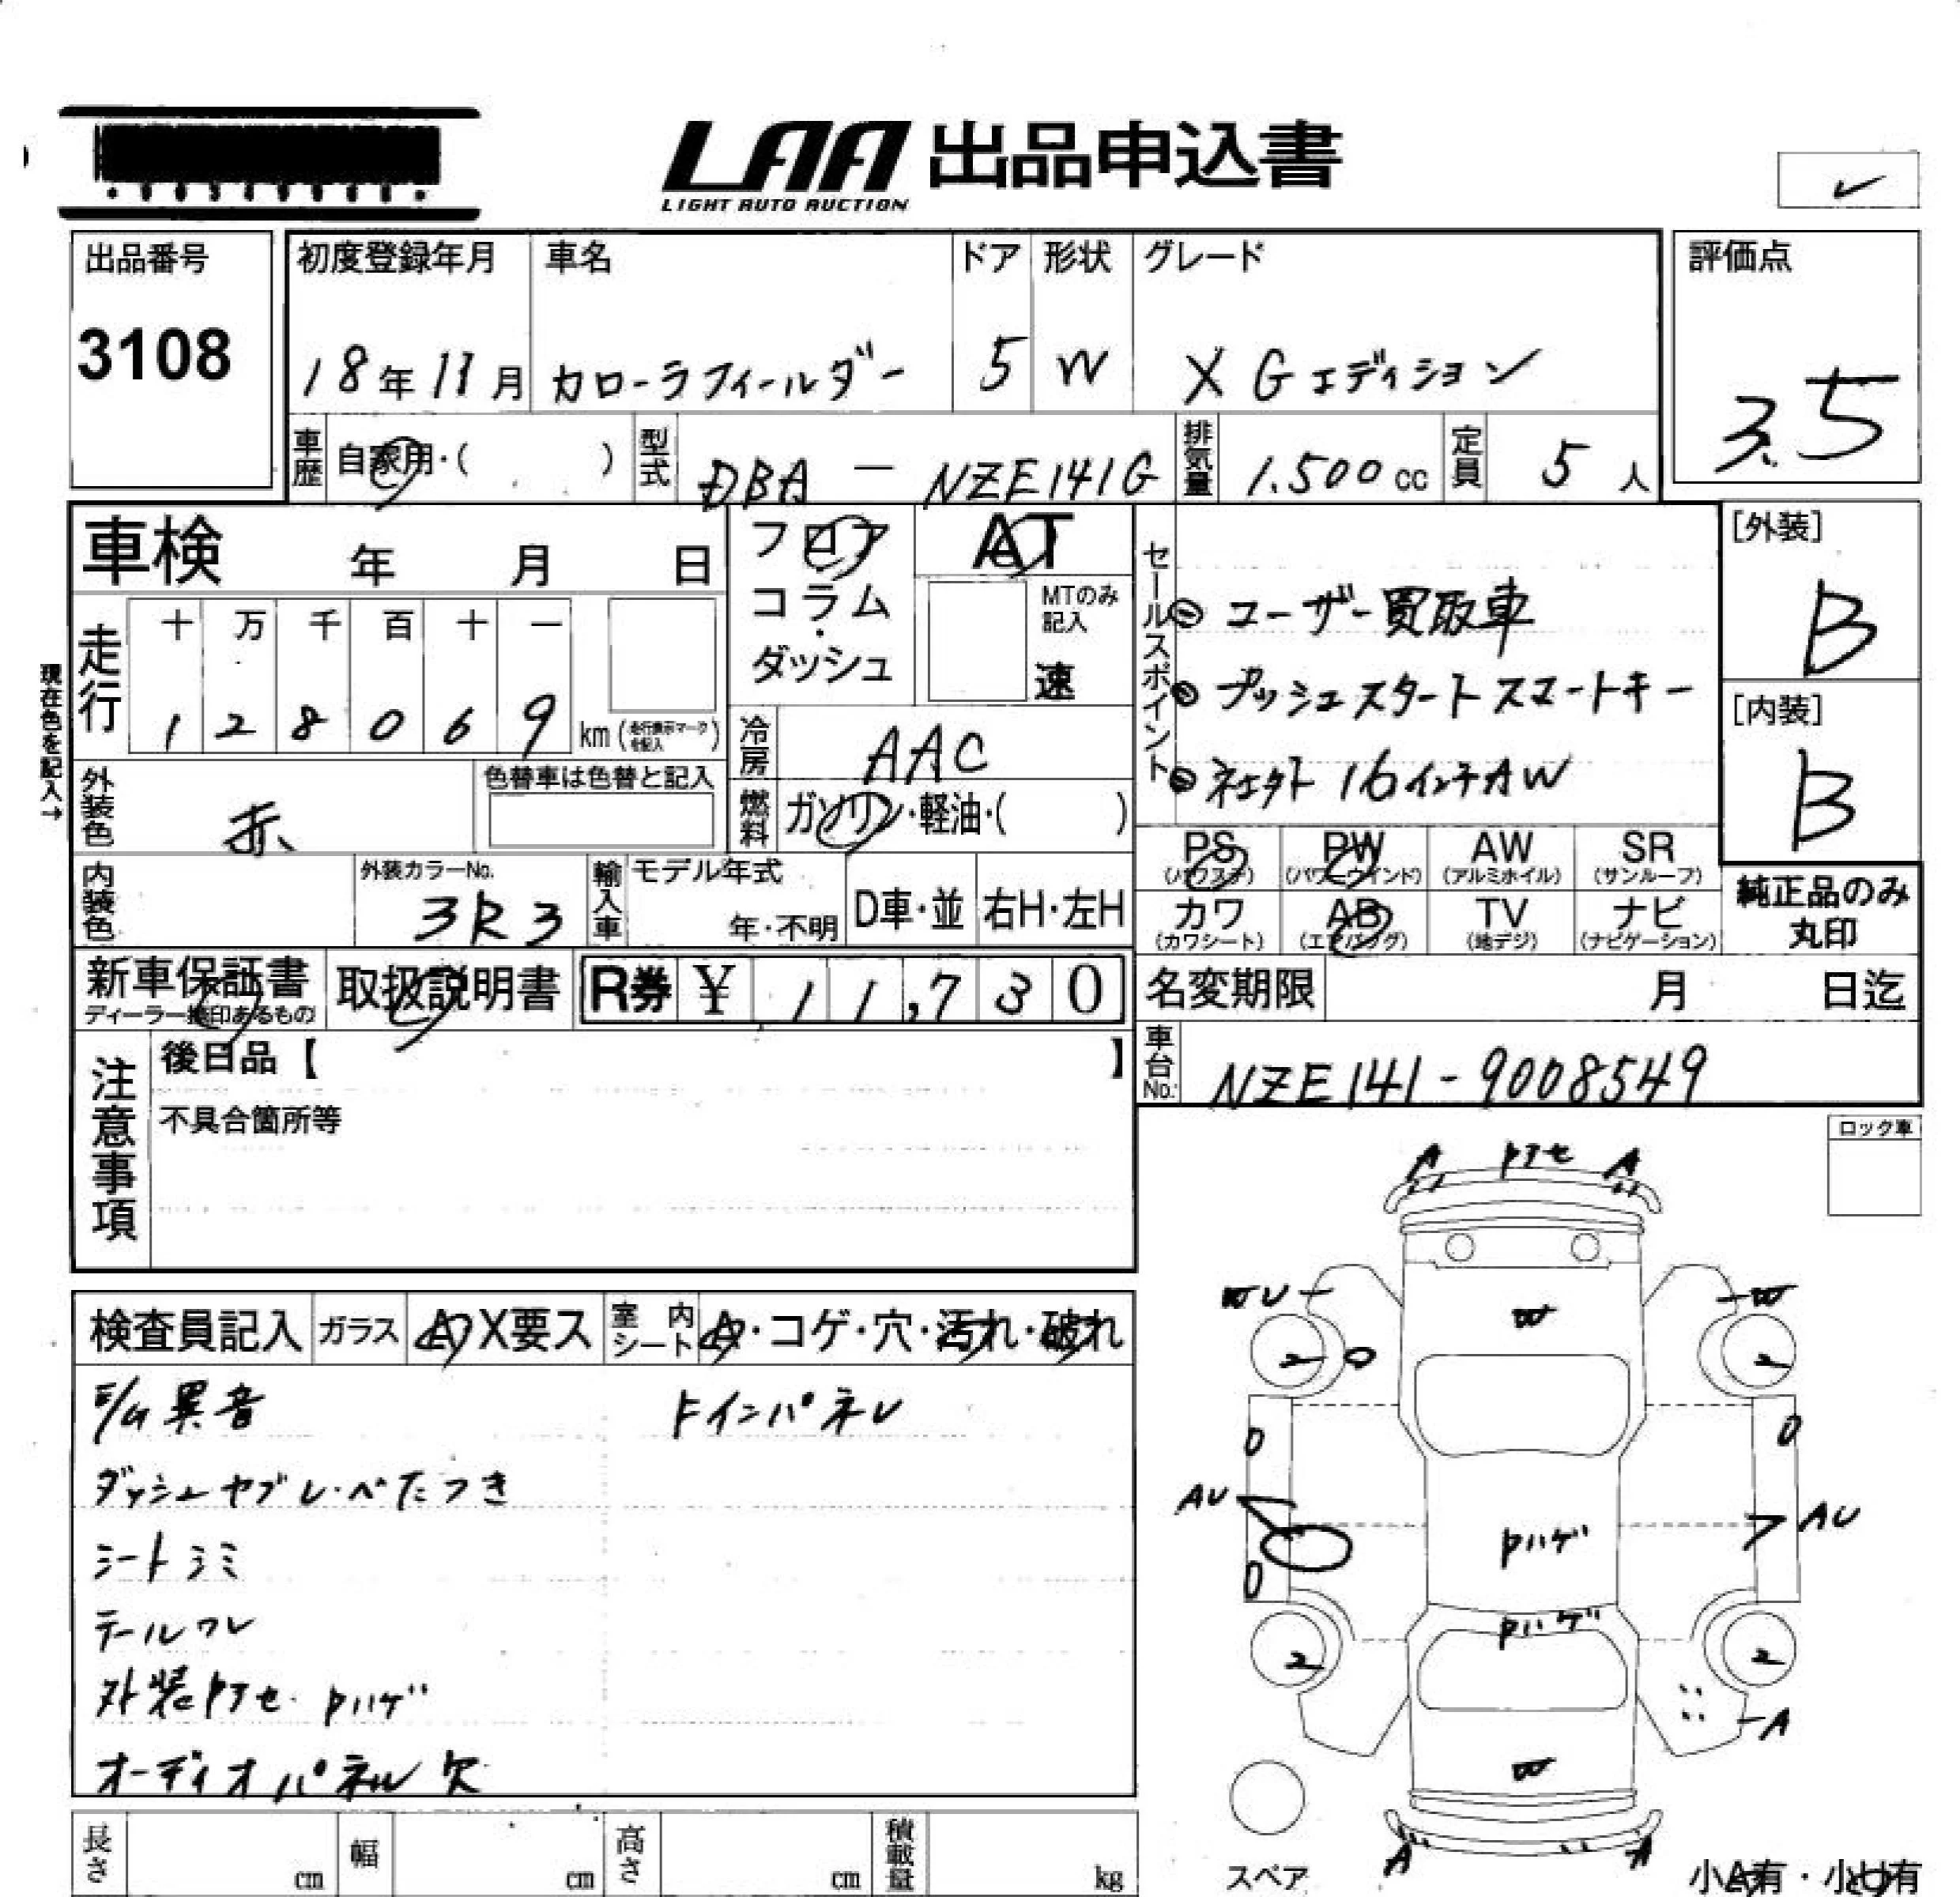 LAA 出品申込書
LIGHT AUTO AUCTION
出品番号
3108
初度登録年月
18年11月
車名
カローラフィールダー
ドア
5
形状
W
グレード
X Gエディション
評価点
3.5
車歴
自家用・( )
型式
DBA - NZE141G
排気量
1.500cc
定員
5人
車検 年 月 日
走行
十 万 千 百 十 一
1 2 8 0 6 9 km
(走行表示マークを記入)
現在色を記入→
外装色
赤
色替車は色替と記入
内装色
外装カラーNo.
3R3
フロア
コラム
・
ダッシュ
AT
MTのみ
記入
速
冷房
AAC
燃料
ガソリン・軽油・( )
輸入車
モデル年式
年・不明
D車・並
右H・左H
セールスポイント
ユーザー買取車
プッシュスタートスマートキー
16インチAW
[外装]
B
[内装]
B
PS
(パワステ)
PW
(パワーウインド)
AW
(アルミホイル)
SR
(サンルーフ)
カワ
(カワシート)
AB
(エアバッグ)
TV
(地デジ)
ナビ
(ナビゲーション)
純正品のみ
丸印
新車保証書
ディーラー捺印あるもの
取扱説明書
R券 ¥ 11,730
名変期限 月 日迄
車台No.
NZE141-9008549
注意事項
後日品【 】
不具合箇所等
ロック車
検査員記入
ガラス
A X要ス
室内シート
A・コゲ・穴・汚れ・破れ
E/G異音
ダッシュヤブレ・べたつき
シートシミ
テールワレ
外装Pアセ・Pハゲ
オーディオパネル欠
A Pアセ A
WU
W
W
2 0
2
0
0
AU
AU
0
Pハゲ
Pハゲ
2
2
A
W
A
A
スペア
小A有・小U有
長さ cm
幅 cm
高さ cm
積載量 kg